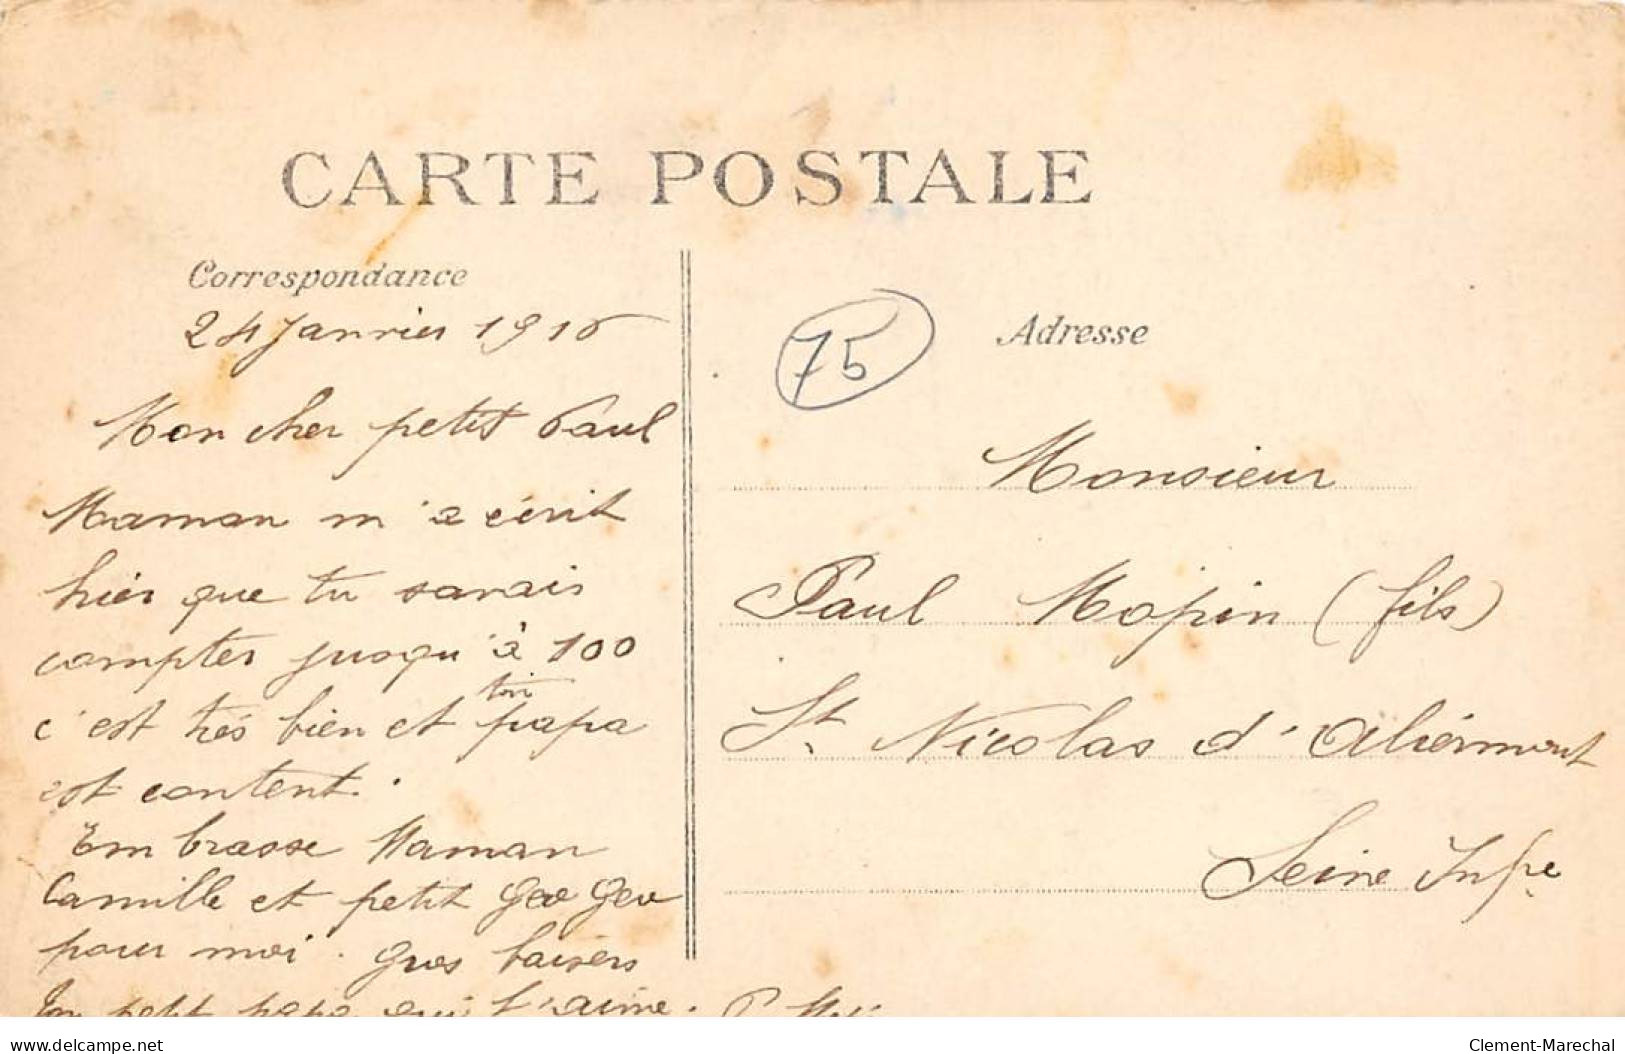 CARTE POSTALE
Correspondance
24 Janvier 1916
Mon cher petit Paul
Maman m'a écrit
hier que tu savais
compter jusqu'à 100
c'est très bien et ton papa
est content.
Embrasse Maman
Camille et petit Geo Geo
pour moi. Gros baisers
Ton petit papa qui t'aime. P
75
Adresse
Monsieur
Paul Mopin (fils)
St. Nicolas d'Aliermont
Seine Infre
www.delcampe.net
Clement-Marechal